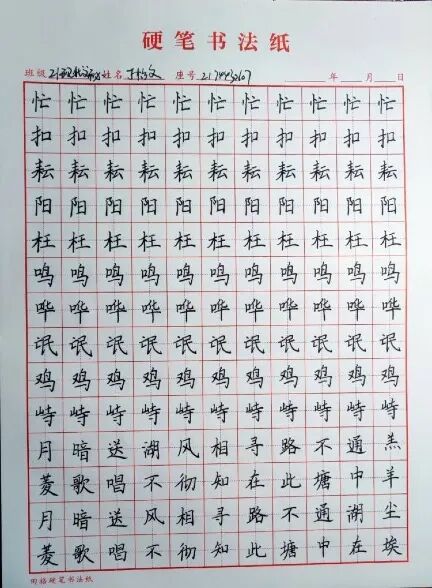 硬笔书法纸
班级 姓名 座号 年 月 日
忙忙忙忙忙忙忙忙忙忙忙
扣扣扣扣扣扣扣扣扣扣扣
耘耘耘耘耘耘耘耘耘耘耘
阳阳阳阳阳阳阳阳阳阳阳
枉枉枉枉枉枉枉枉枉枉枉
鸣鸣鸣鸣鸣鸣鸣鸣鸣鸣鸣
哗哗哗哗哗哗哗哗哗哗哗
氓氓氓氓氓氓氓氓氓氓氓
鸡鸡鸡鸡鸡鸡鸡鸡鸡鸡鸡
峙峙峙峙峙峙峙峙峙峙峙
月暗送湖风相寻路不通羔
菱歌唱不彻知在此塘中羊
月暗送风相寻路不通湖尘
菱歌唱不彻知此塘中在埃
田格硬笔书法纸